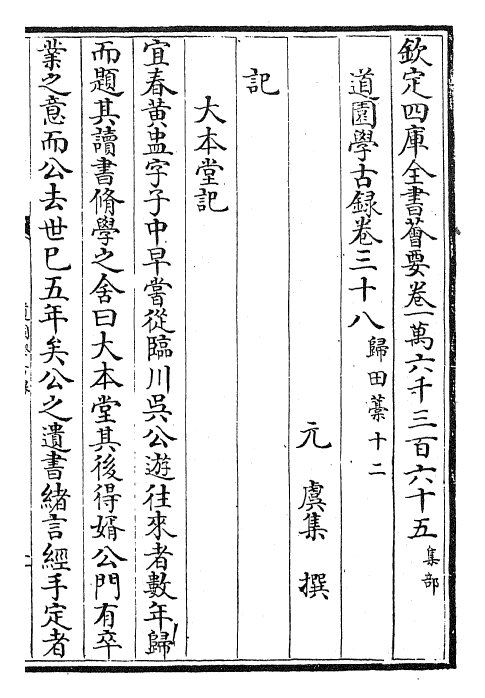 欽定四庫全書薈要卷一萬六千三百六十五集部
道園學古録卷三十八歸田藁十二
元虞集撰
記
大本堂記
宜春黄盅字子中早嘗從臨川吳公遊往來者數年歸
而題其讀書脩學之舍曰大本堂其後得婿公門有卒
業之意而公去世已五年矣公之遺書緒言經手定者